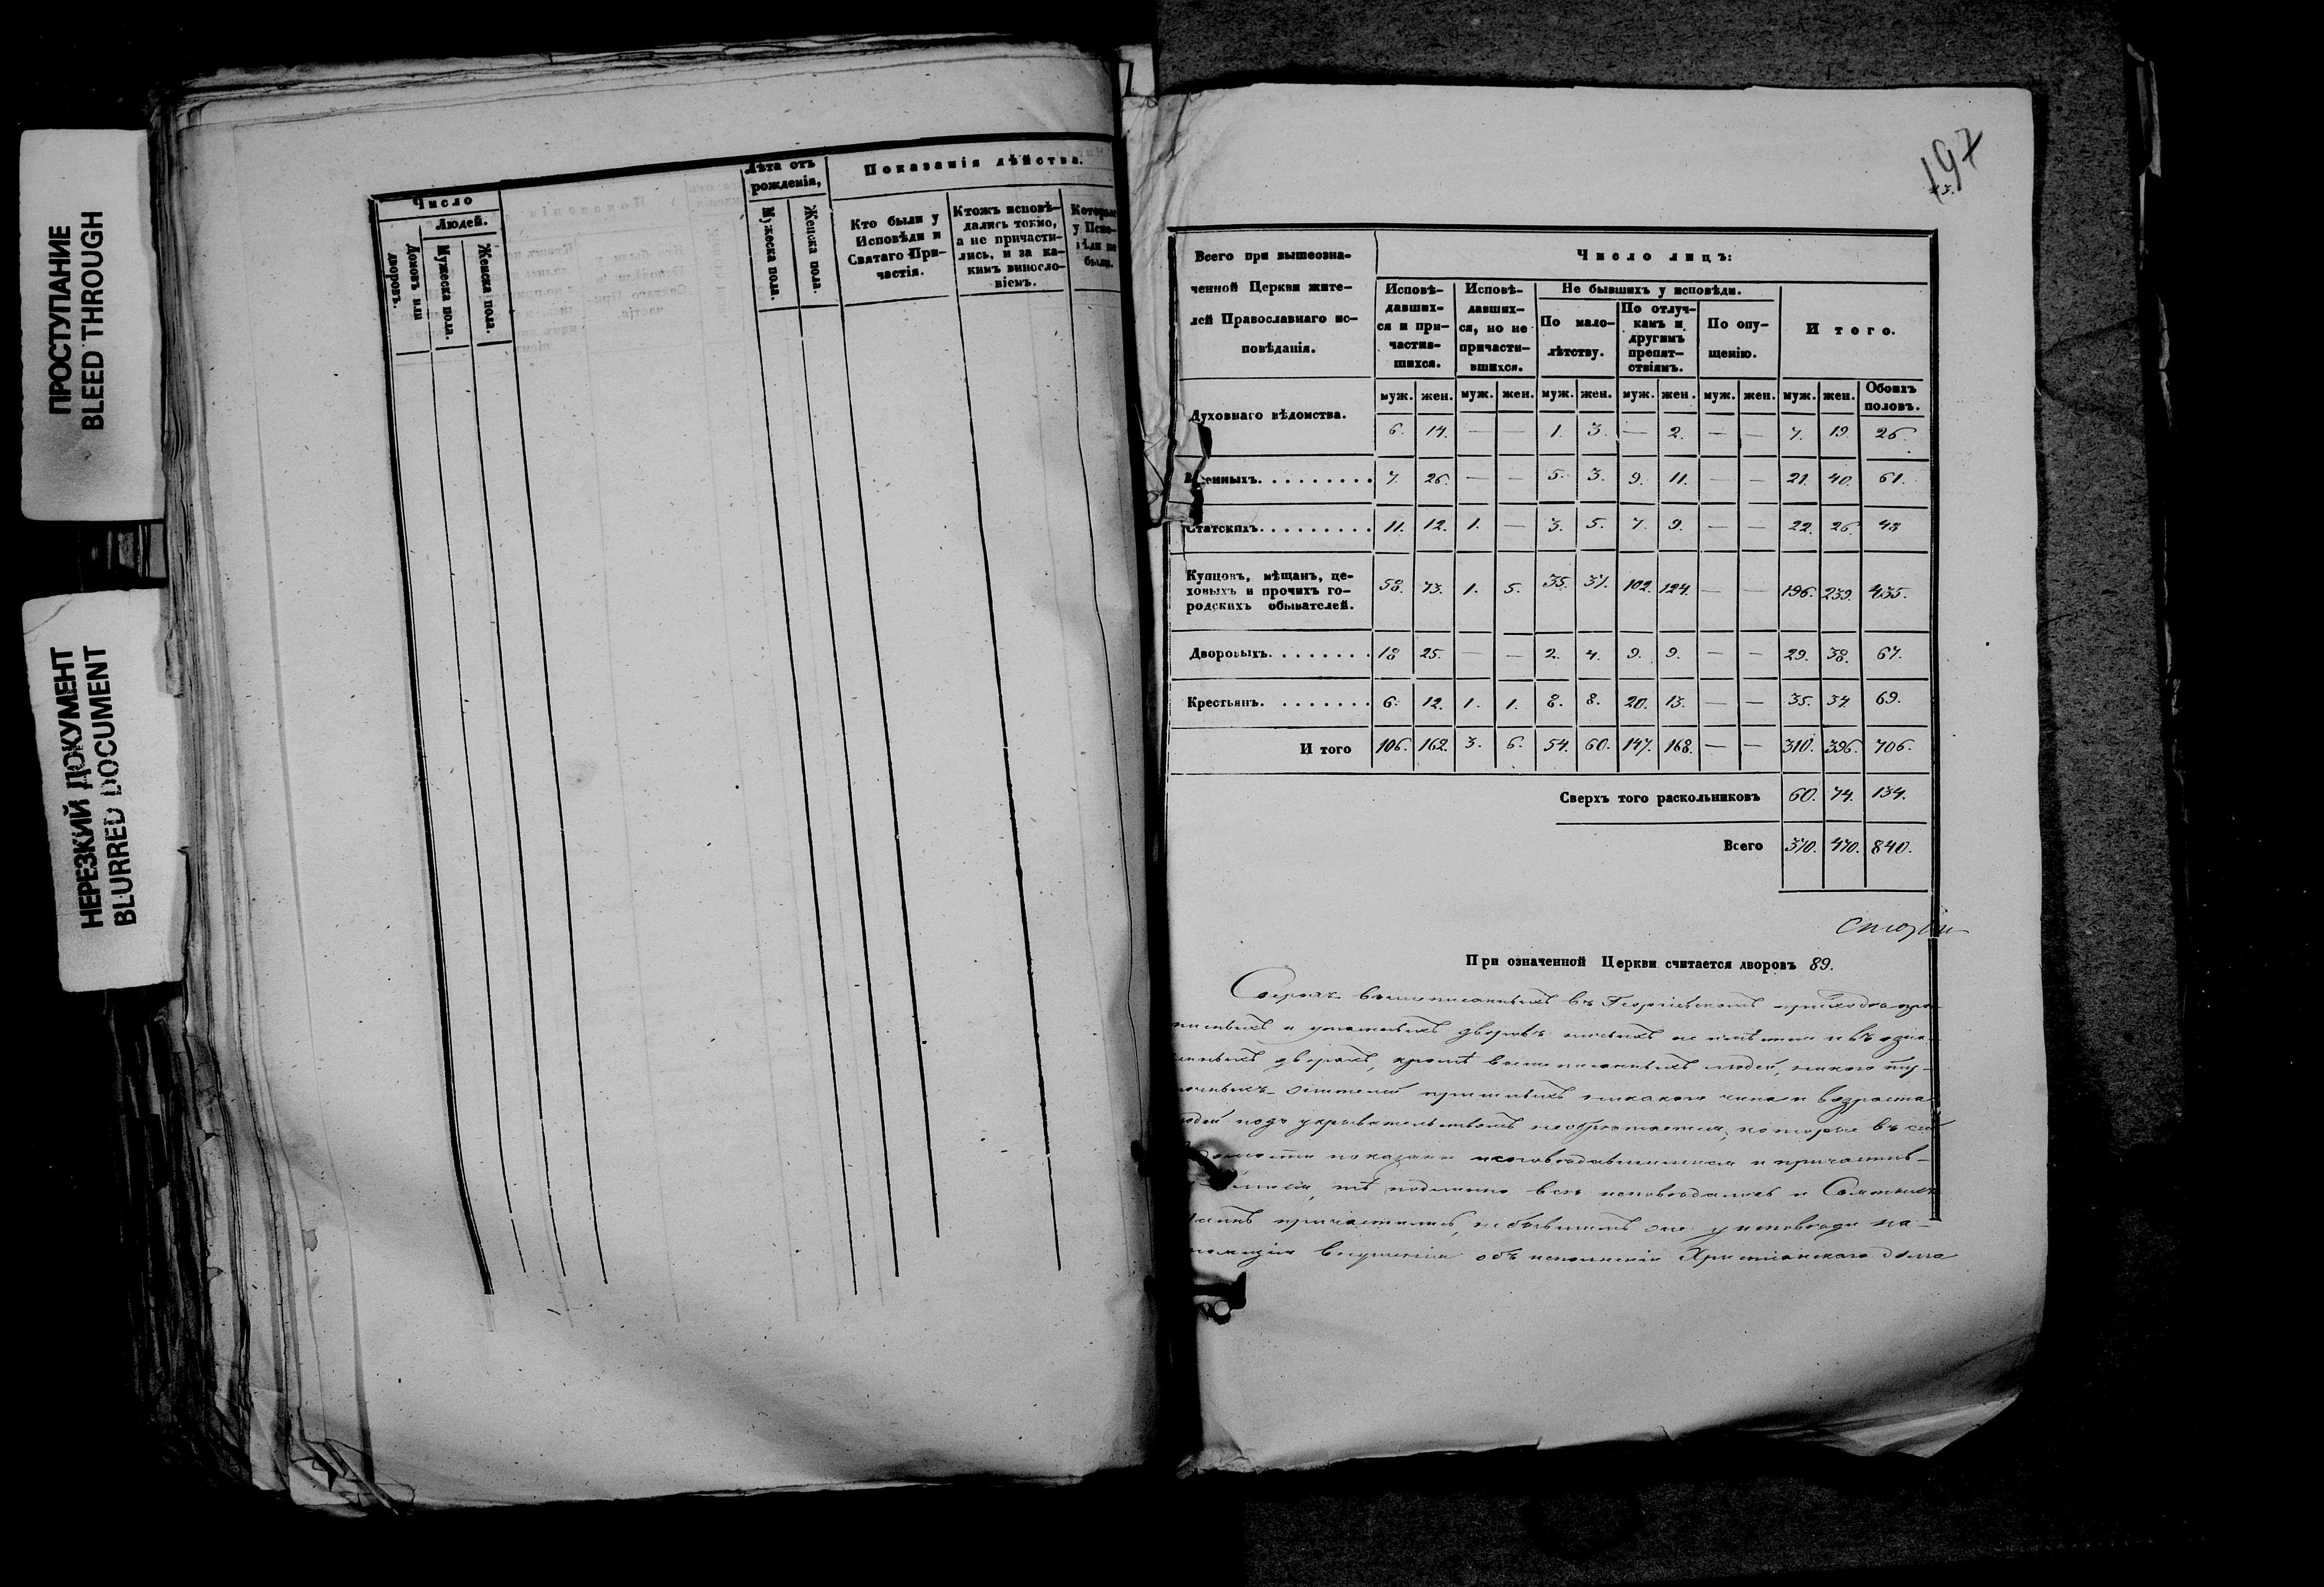 ПРОСТУПАНИЕ
BLEED THROUGH
НЕРЕЗКИЙ ДОКУМЕНТ
BLURRED DOCUMENT
Число
Людей.
Домовъ или дворовъ.
Мужеска пола.
Женска пола.
Лѣта отъ
рожденія,
Мужеска пола.
Женска пола.
Показанія дѣйства.
Кто были у
Исповѣди и
Святаго При-
частія.
Ктожъ исповѣ-
дались токмо,
а не причасти-
лись, и за ка-
кимъ винословіемъ.
Которые
у Испо-
вѣди не
были.
197
Всего при вышеозна-
ченной Церкви жите-
лей Православнаго ис-
повѣданія.
Число лицъ:
Исповѣ-
давших-
ся и при-
частив-
шихся.
Исповѣ-
давших-
ся, но не
причасти-
вшихся.
Не бывшихъ у исповѣди.
По мало-
лѣтству.
По отлуч-
камъ и
другимъ
препят-
ствіямъ.
По опу-
щенію.
И того.
муж. жен. муж. жен. муж. жен. муж. жен. муж. жен. муж. жен. Обоихъ половъ.
Духовнаго вѣдомства. 6. 14. — — 1. 3. — 2. — — 7. 19. 26.
Военныхъ. 7. 26. — — 5. 3. 9. 11. — — 21. 40. 61.
Статскихъ. 11. 12. 1. — 3. 5. 7. 9. — — 22. 26. 48
Купцовъ, мѣщанъ, це-
ховыхъ и прочихъ го-
родскихъ обывателей. 58. 73. 1. 5. 35. 37. 102. 124. — — 196. 239. 435.
Дворовыхъ. 18 25. — — 2. 4. 9. 9. — — 29. 38. 67.
Крестьянъ. 6. 12. 1. 1. 8. 8. 20. 13. — — 35. 34. 69.
И того 106. 162. 3. 6. 54. 60. 147. 168. — — 310. 396. 706.
Сверхъ того раскольниковъ 60. 74. 134.
Всего 370. 470. 840.
При означенной Церкви считается дворовъ 89.
Сверхъ вышеписанныхъ въ Георгіевскомъ приходѣ
дворовъ никакихъ не имѣется и въ озна-
дворахъ, кромѣ вышеписанныхъ людей, никого
никакого чина и возраста
подъ укрывательствомъ необрѣтается, которые въ сей
показаны исповѣдавшимися и причастив-
тѣ подлинно всѣ исповѣдались и Святыхъ
причастились, не бывшимъ же у исповѣди
внушенія объ исполненіи Христіанскаго долга